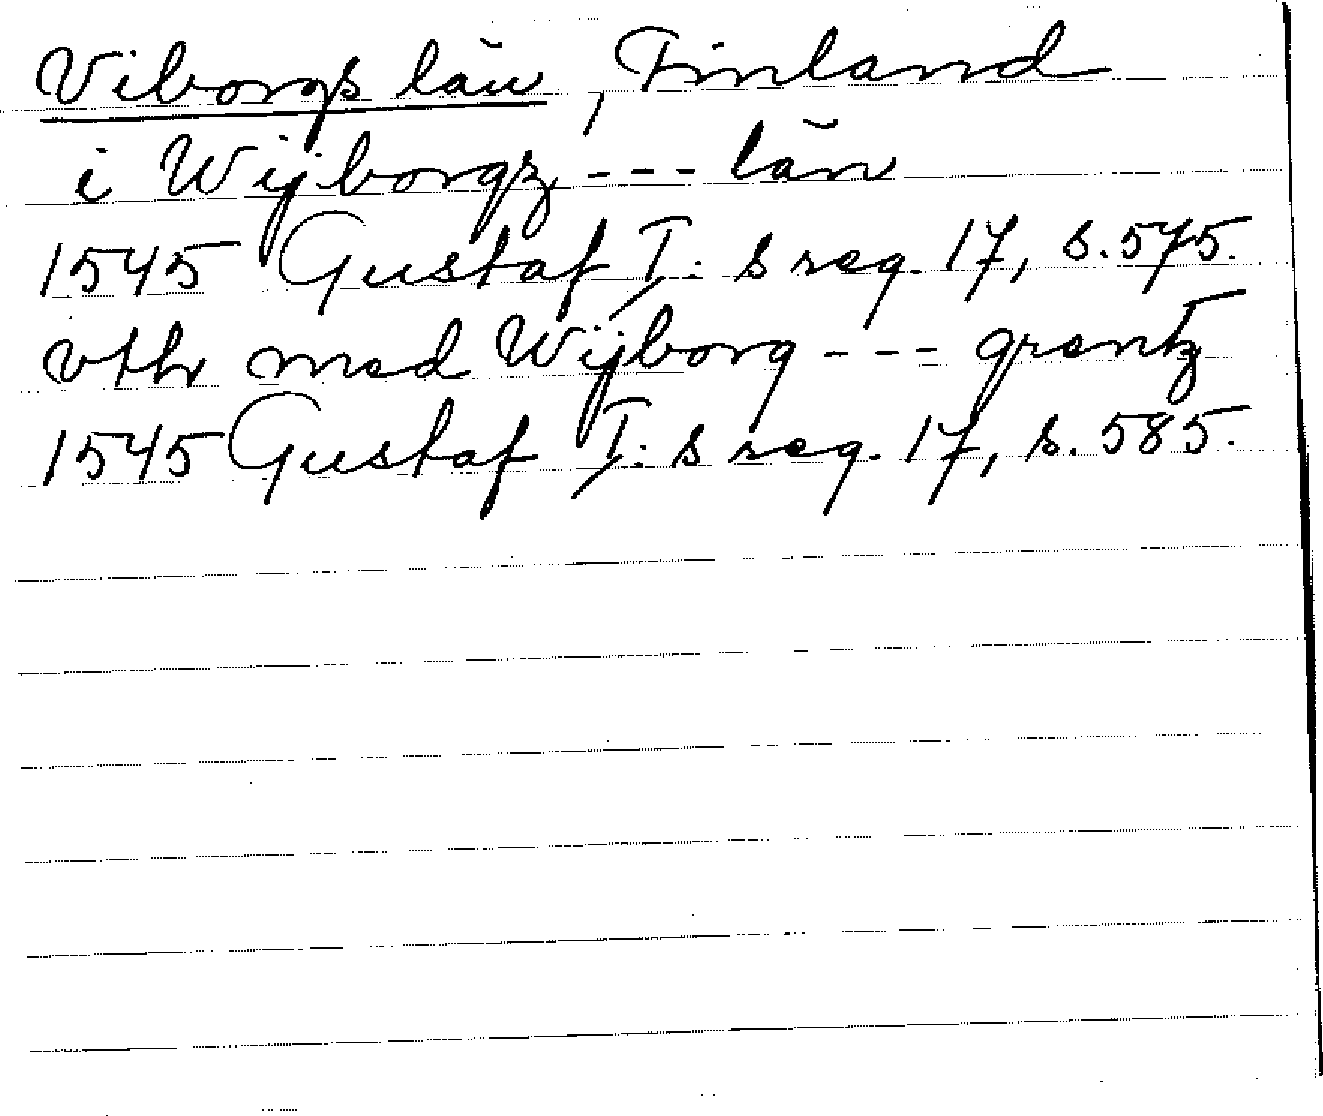 Viborgs län, Finland
i Wijborgz --- län
1545 Gustaf I:s reg. 17, s. 575.
vthr med Wijborg --- grentz
1545 Gustaf I:s reg. 17, s. 585.